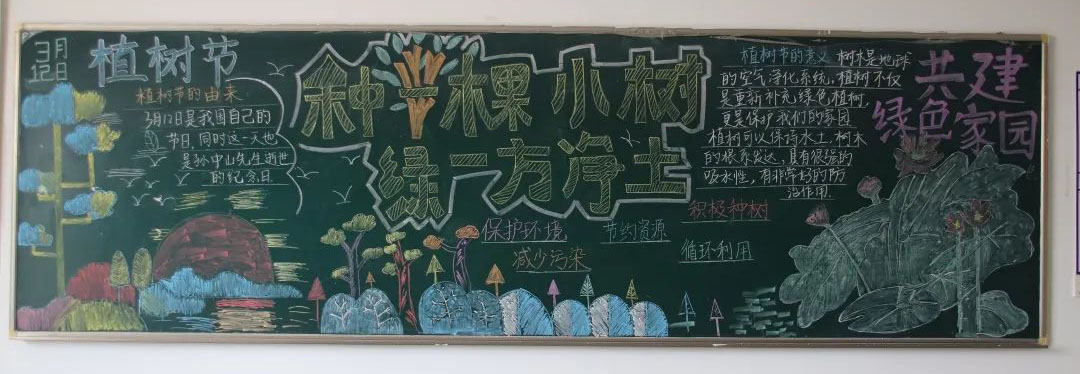 3月
12日
植树节
植树节的由来
3月12日是我国自己的
节日,同时这一天也
是孙中山先生逝世
的纪念日
种一棵小树
绿一方净土
保护环境
节约资源
减少污染
积极种树
循环利用
植树节的意义 树木是地球
的空气净化系统,植树不仅
是重新补充绿色植树,
更是保护我们的家园
植树可以保持水土,树木
的根系发达,具有很强的
吸水性,有非常好的防
治作用.
共建
绿色家园